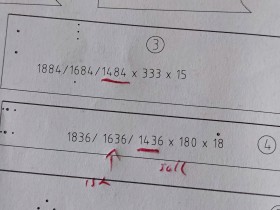 3
1884/1684/1484 x 333 x 15
1836/ 1636/ 1436 x 180 x 18
4
ist
soll